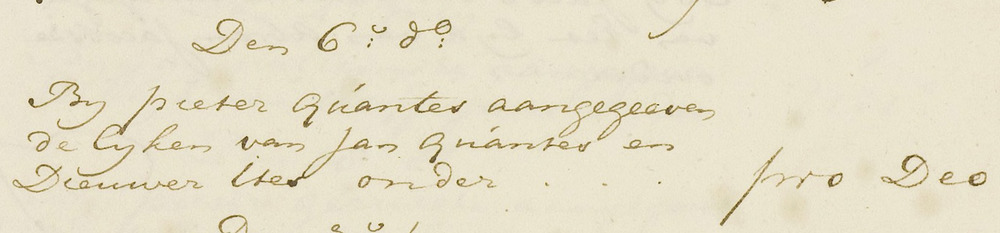 Den 6:e do:
By pieter Quantes aangegeeven
de lyken van Jan Quantes en
Dieuwer Ites onder . . . pro Deo